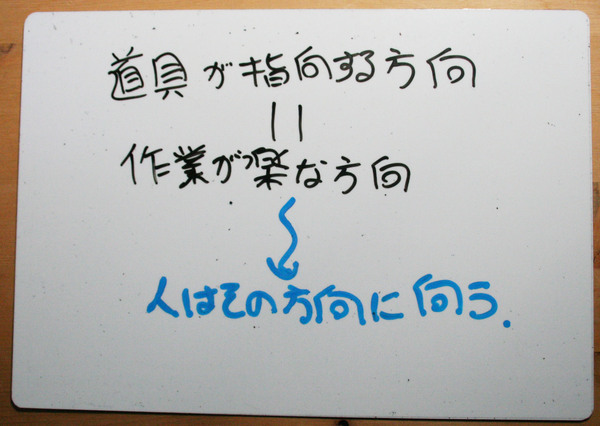 道具が指向する方向
=
作業が楽な方向
人はその方向に向う.